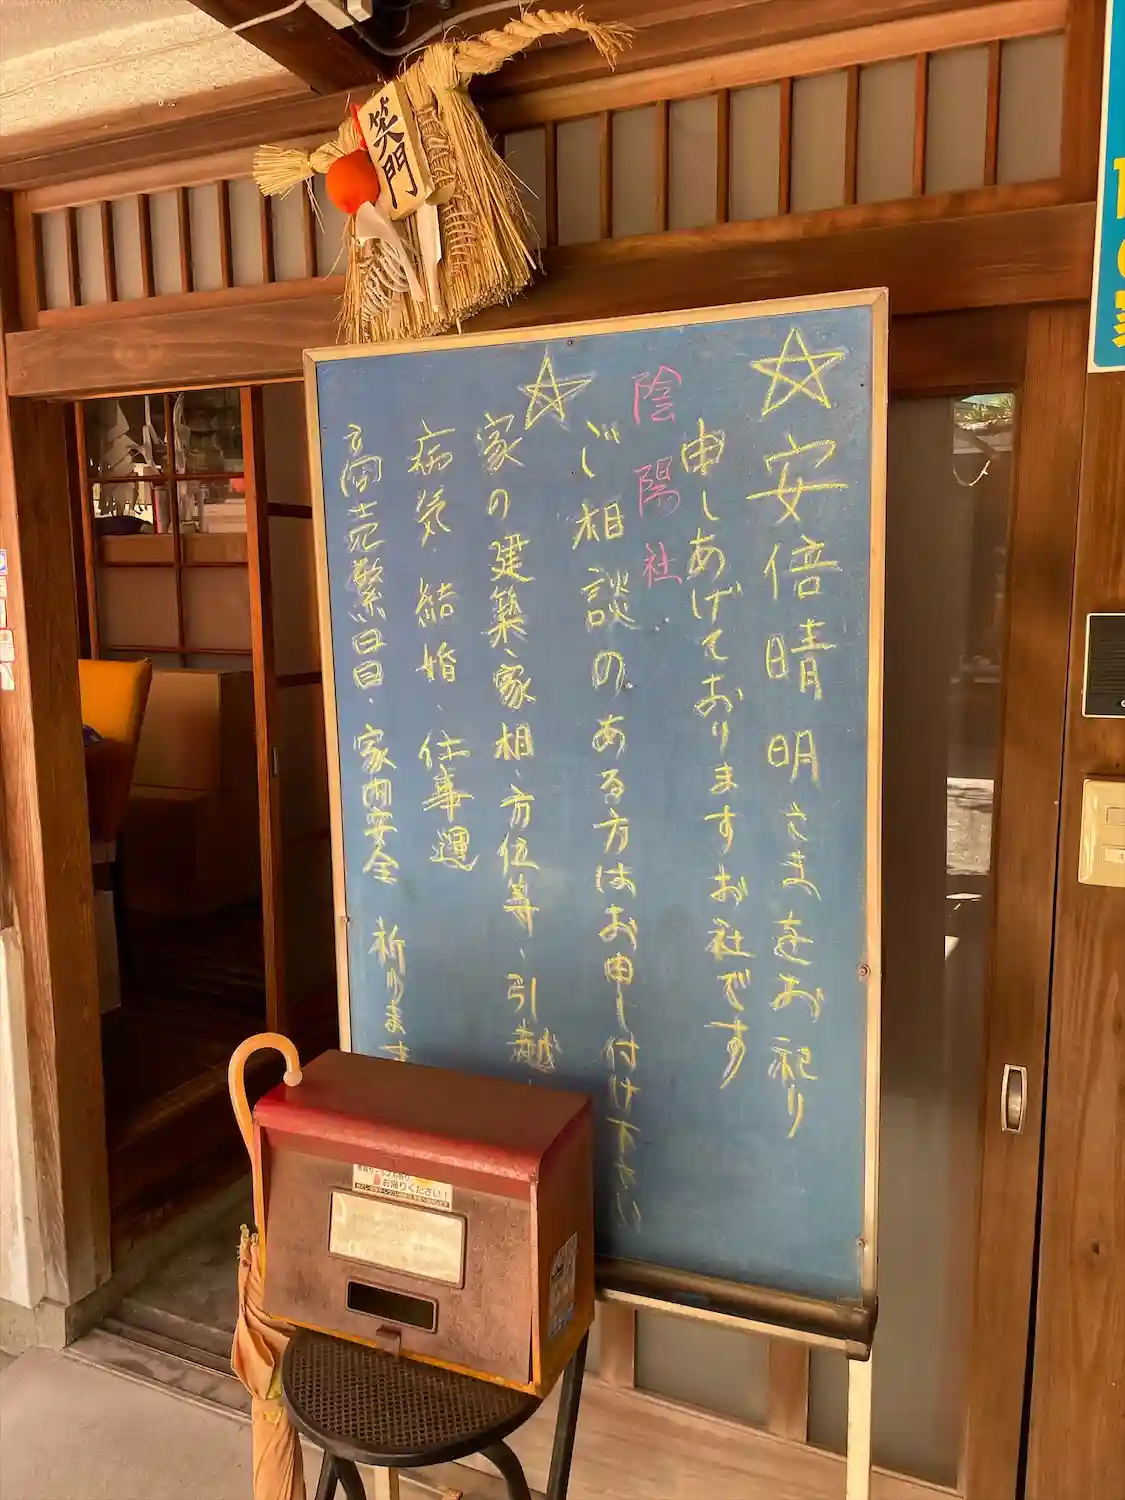 笑門
☆安倍晴明さまをお祀り
申しあげておりますお社です
陰陽社
ご相談のある方はお申し付け下さい
☆家の建築、家相、方位等、引越
病気、結婚、仕事運
商売繁昌、家内安全 祈ります
お滴りください!